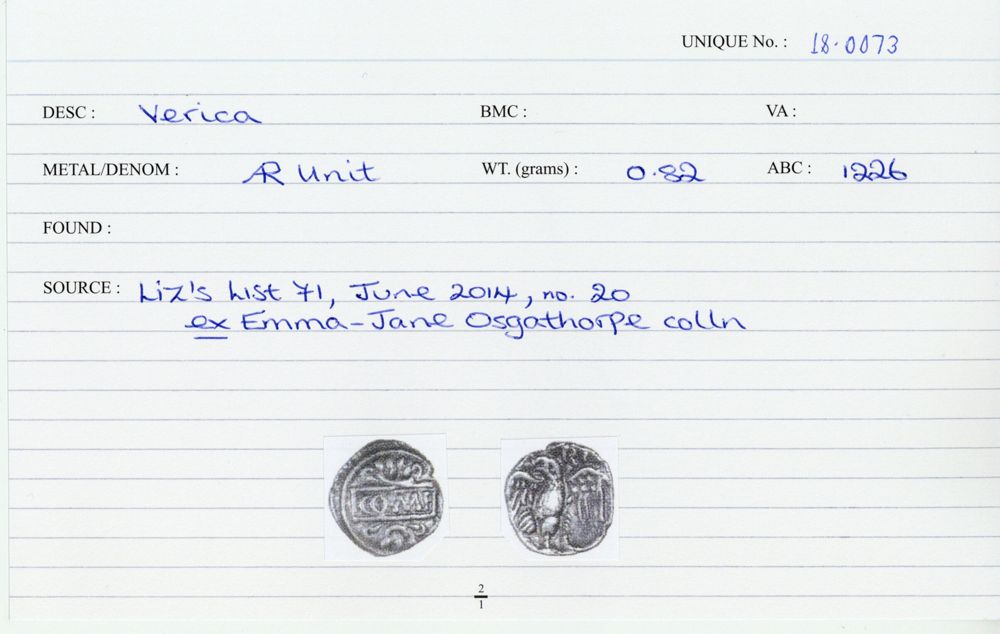 UNIQUE No. : 18.0073
DESC : Verica BMC : VA :
METAL/DENOM : AR Unit WT. (grams) : 0.82 ABC : 1226
FOUND :
SOURCE : Liz's List 71, June 2014, no. 20
ex Emma-Jane Osgathorpe colln
COMF
2
1